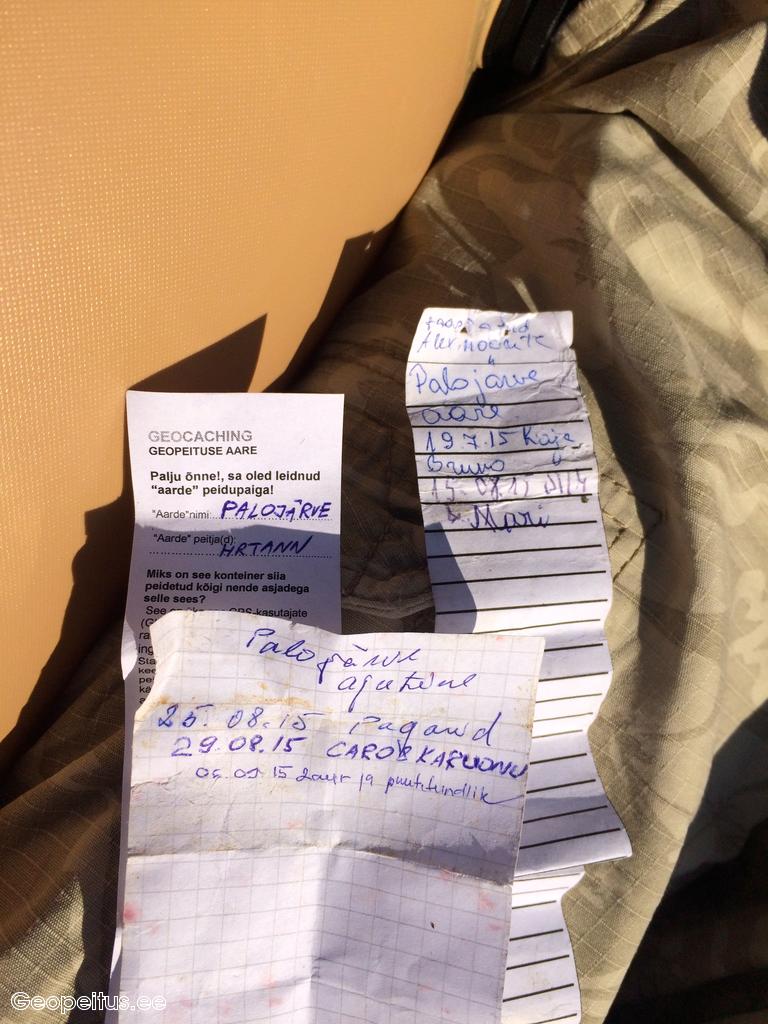 Alex
Palojärve
aare
19.7.15 Kaja
Bruno
15.08.15
Mari
GEOCACHING
GEOPEITUSE AARE
Palju õnne!, sa oled leidnud
“aarde” peidupaiga!
"Aarde"nimi: PALOJÄRVE
"Aarde" peitja(d):
HRTANN
Miks on see konteiner siia
peidetud kõigi nende asjadega
selle sees?
See GPS-kasutajate
Palojärve
ajutine
25.08.15 Pagand
29.08.15 CAROB KARUONU
05.09.15 Laur ja puutetundlik
Geopeitus.ee